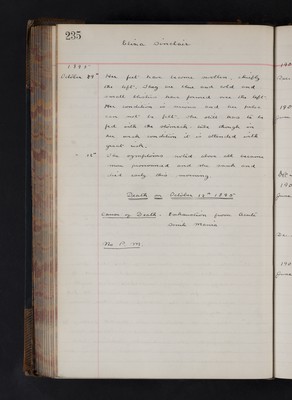 235
Eliza Sinclair
1895
October 29th Her feet have become swollen, chiefly
the left. They are blue and cold and
small blisters have formed over the left.
Her condition is serious and her pulse
can not be felt. She still has to be
fed with the stomach-tube though in
her weak condition it is attended with
great risk.
" The symptoms noted above all became
more pronounced and she sank and
died early this morning.
Death on October 1895
Cause of Death. Exhaustion from Acute
Mania
No P. M.
190
190
190
190